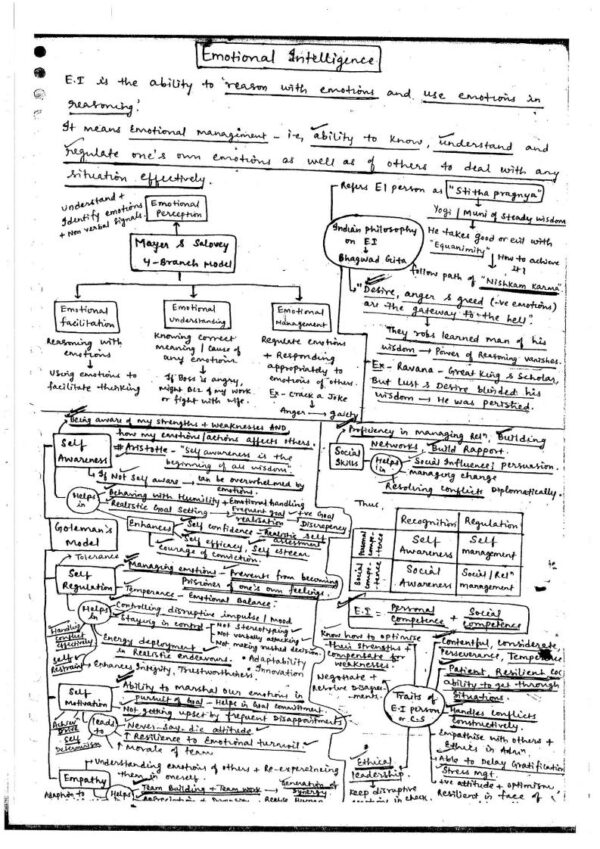 Emotional Intelligence
E.I is the ability to 'reason with emotions and use emotions in
reasoning.'
It means Emotional management – i.e, ability to know, understand and
regulate one's own emotions as well as of others to deal with any
situation effectively.
Understand +
Identify emotions
+ Non verbal signals.
Emotional
Perception
Mayer & Salovey
4-Branch Model
Emotional
facilitation
Reasoning with
emotions
Using emotions to
facilitate thinking
Emotional
Understanding
Knowing correct
meaning / cause of
any emotion
If Boss is angry,
might Bcz of my work
or fight with wife.
Emotional
Management
Regulate emotions
+ Responding
appropriately to
emotions of others.
Ex- crack a Joke
Anger → gaiety
Refers EI person as "Stitha pragnya"
Yogi / Muni of steady wisdom
He takes good or evil with
"Equanimity"
How to achieve
it?
follow path of "Nishkam Karma"
Indian philosophy
on E.I
Bhagwad Gita
"Desire, anger & greed (-ve emotions)
are the gateway to the hell".
They robs learned man of his
wisdom → Power of Reasoning vanishes.
Ex - Ravana - Great king & Scholar,
But lust & Desire blinded his
wisdom → He was perished.
Goleman's
Model
Self
Awareness
Being aware of my strengths + weaknesses AND
how my emotions/actions affects others.
# Aristotle - "Self awareness is the
beginning of all wisdom"
If Not Self aware → can be overwhelmed by
emotions.
Helps
in
Behaving with Humility + Emotional handling
Realistic Goal Setting
Frequent goal
realisation
+ve Goal
Discrepency
Enhances
Self confidence - Realistic self
assessment
Self efficacy, Self esteem
courage of conviction.
Tolerance
Self
Regulation
Managing emotions - Prevents from becoming
Prisoner of one's own feelings.
Temperance - Emotional Balance
Helps
in
Controlling disruptive impulse / mood
Staying in control
Not stereotyping
Not verbally attacking
Not making rushed decision.
Handling
conflict
effectively
Energy deployment
in Realistic endeavours.
Adaptability
Innovation
Self
Restraint
Enhances Integrity, Trustworthiness.
Self
Motivation
Ability to marshal our emotions in
pursuit of Goal - Helps in Goal commitment
Not getting upset by frequent Disappointments
Drive
Self
Determination
leads
to
Never-say-die attitude
↑ Resilience to Emotional turmoil
↑ Morale of team
Empathy
Understanding emotions of others + Re-experiencing
them in oneself.
Helps
Team Building + Team work → Generation of
synergy
Social
Skills
Proficiency in managing Reln, Building
Networks, Build Rapport.
Helps
in
Social Influence; persuasion.
managing change
Resolving conflicts Diplomatically.
Thus
Recognition
Regulation
Personal
compe-
tence
Self
Awareness
Self
management
Social
compe-
tence
Social
Awareness
Social / Reln
management
E.I = Personal
Competence + Social
Competence
Traits of
E.I person
or C.S
Know how to optimise
their strengths +
compensate for
weaknesses.
Negotiate +
Resolve Disagree-
ments.
Ethical
leadership.
Keep disruptive
emotions in check.
Contentful, considerate
Perseverance, Temperance
Patient, Resilient
ability to get through
situations
Handles conflicts
constructively.
Empathise with others +
Ethics in Admn.
Able to Delay Gratification
Stress mgt.
+ve attitude + optimism
Resilient in face of